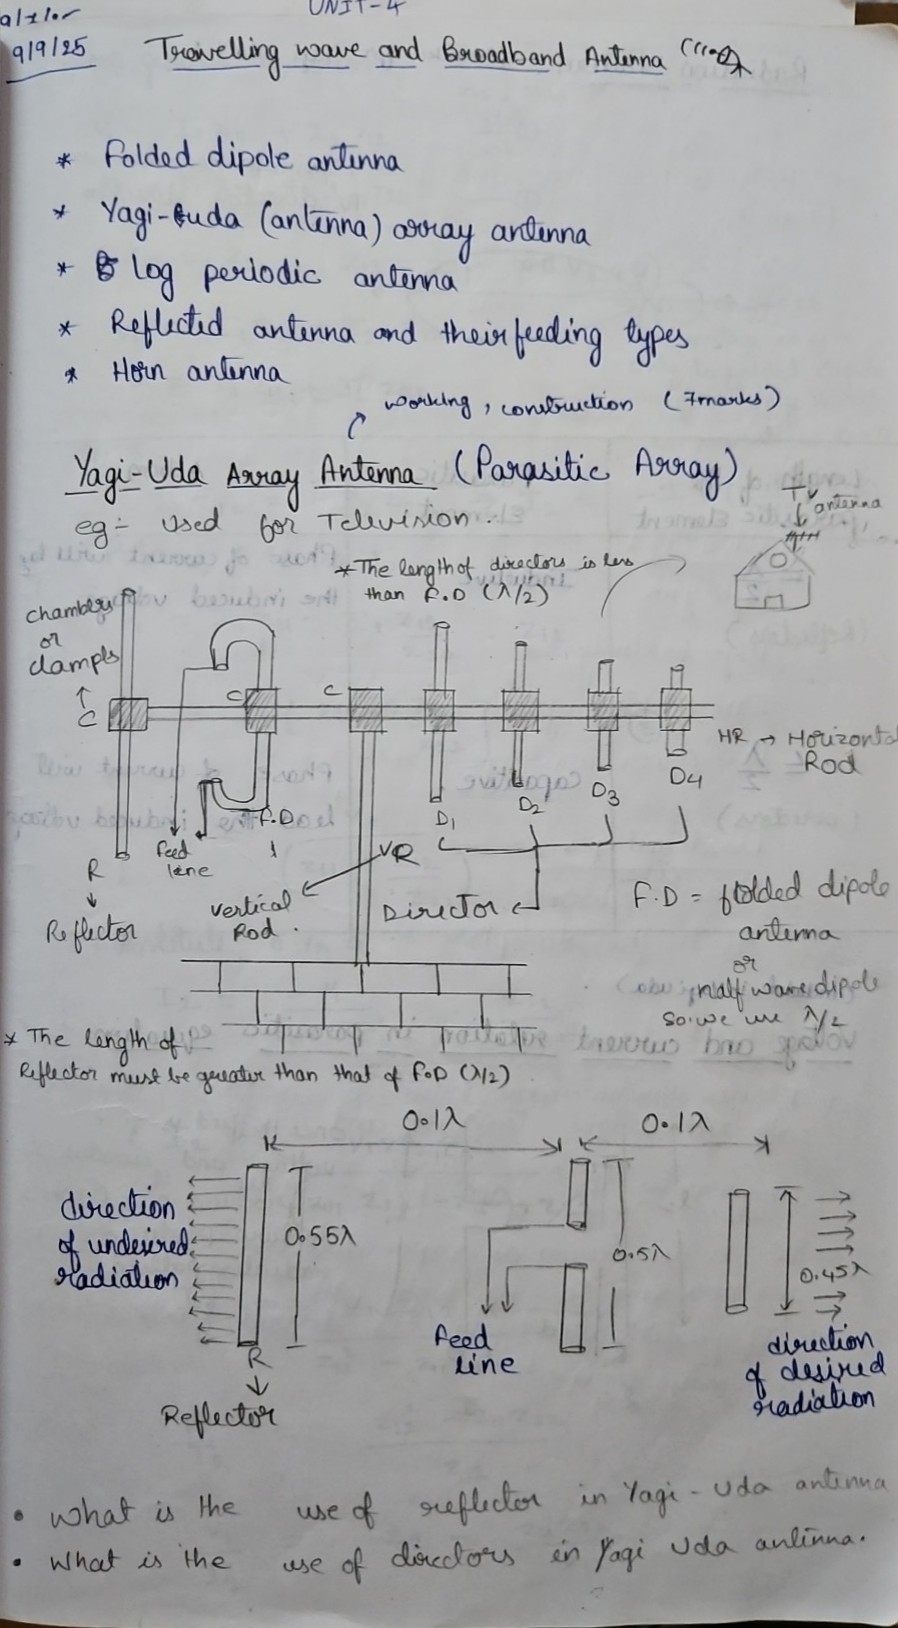 UNIT-4
9/9/25
Travelling wave and Broadband Antenna
* Folded dipole antenna
* Yagi-uda (antenna) array antenna
* log periodic antenna
* Reflected antenna and their feeding types
* Horn antenna
working, construction (7marks)
Yagi-Uda Array Antenna (Parasitic Array)
eg:- Used for Television.
TV antenna
* The length of directors is less
than F.D (λ/2)
or
clamps
C
C
C
HR → Horizontal
Rod
D1
D2
D3
D4
F.D
feed
line
R
Reflector
VR
vertical
Rod.
Director
F.D = folded dipole
antenna
or
half wave dipole
so we use λ/2
* The length of
Reflector must be greater than that of F.D (λ/2)
0.1λ
0.1λ
direction
of undesired
radiation
0.55λ
0.5λ
0.45λ
Feed
line
R
Reflector
direction
of desired
radiation
• What is the use of reflector in Yagi-Uda antenna
• What is the use of directors in Yagi Uda antenna.